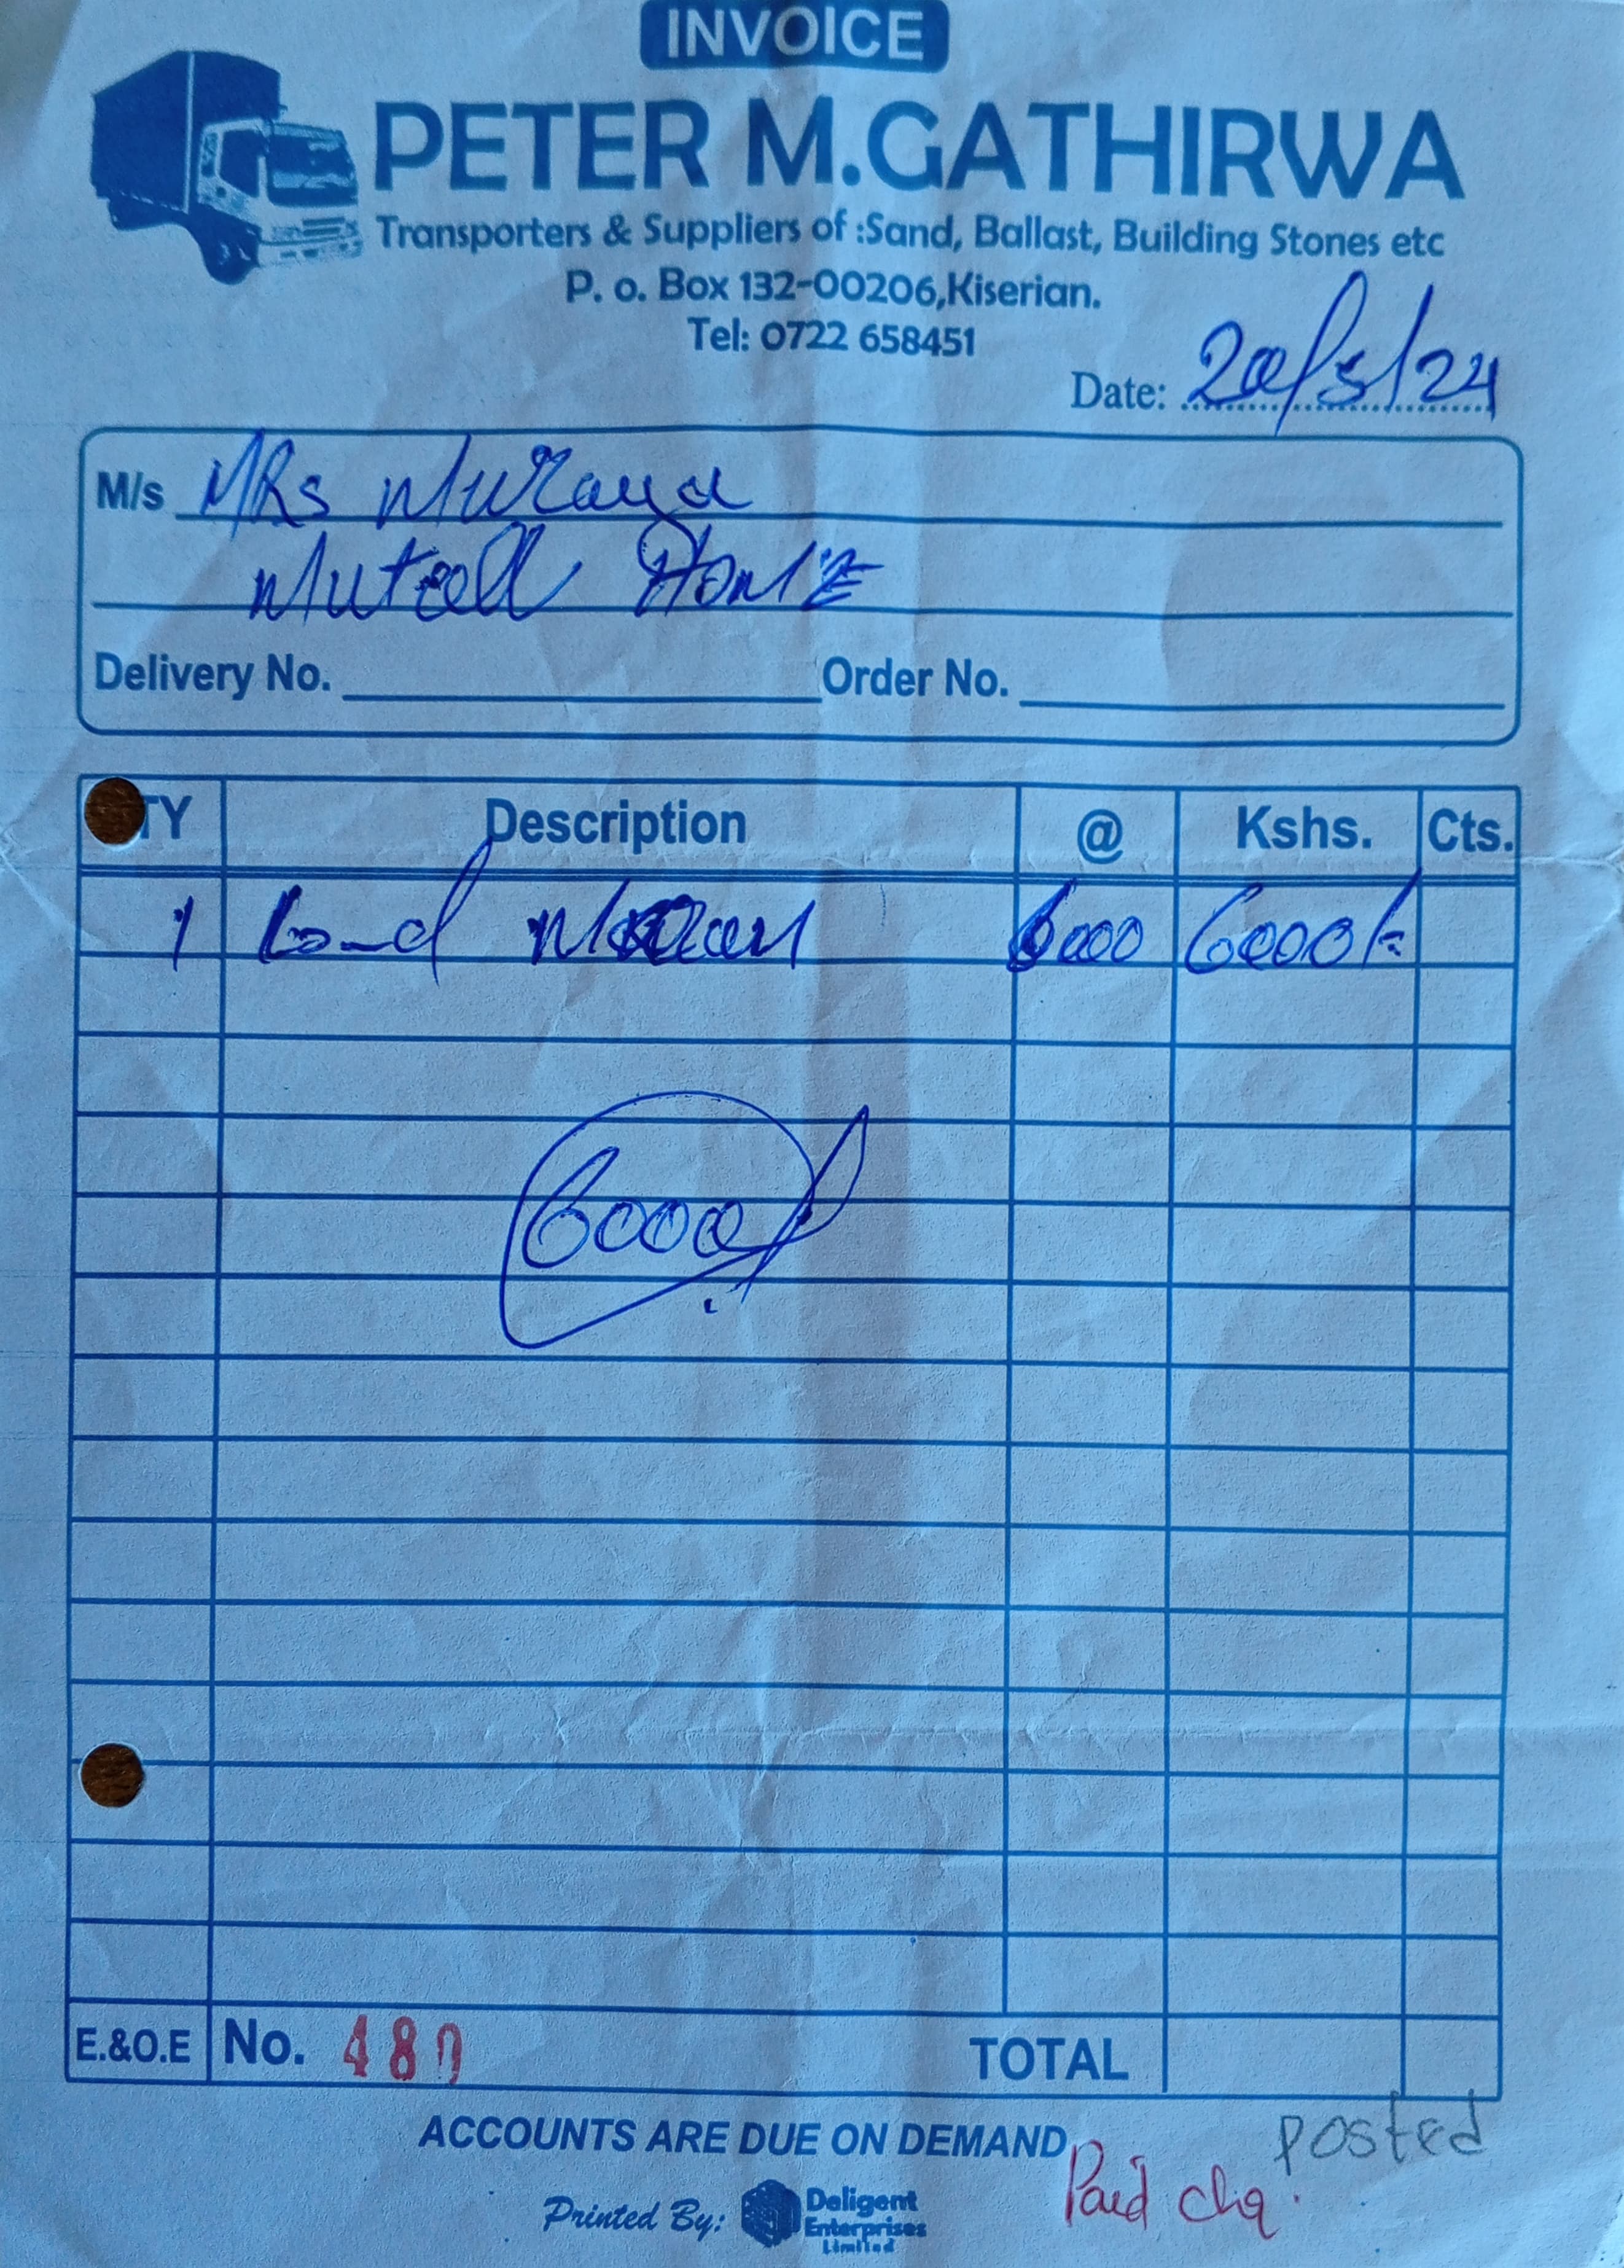 INVOICE
PETER M.GATHIRWA
Transporters & Suppliers of :Sand, Ballast, Building Stones etc
P. o. Box 132-00206,Kiserian.
Tel: 0722 658451
Date: 20/5/24
M/s MRs
HomE
Delivery No. Order No.
TY Description @ Kshs. Cts.
1 6000 6000/=
6000/
E.&O.E No. 480 TOTAL
ACCOUNTS ARE DUE ON DEMAND
posted
Paid chq.
Printed By: Deligent Enterprises Limited